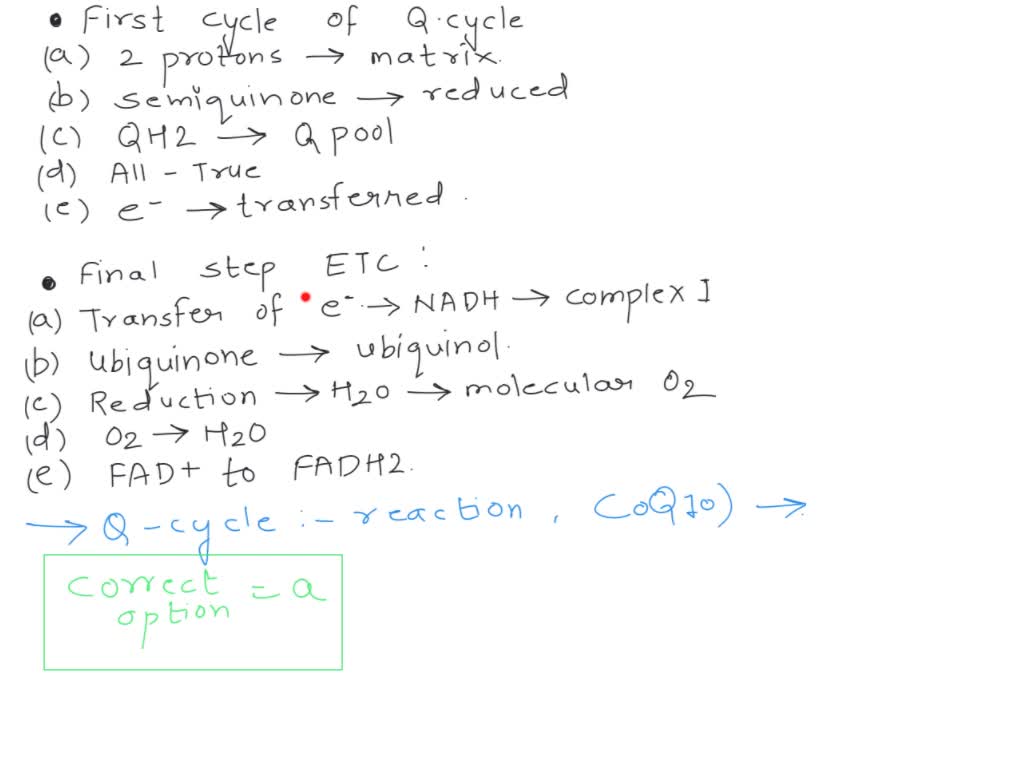 • First cycle of Q.cycle
(a) 2 protons → matrix.
(b) semiquinone → reduced
(c) QH2 → Q pool
(d) All - True
(e) e⁻ → transferred.
• Final step ETC :
(a) Transfer of e⁻ → NADH → complex I
(b) Ubiquinone → ubiquinol.
(c) Reduction → H2O → molecular O2
(d) O2 → H2O
(e) FAD+ to FADH2.
→ Q-cycle :- reaction, CoQ10) →
correct option = a